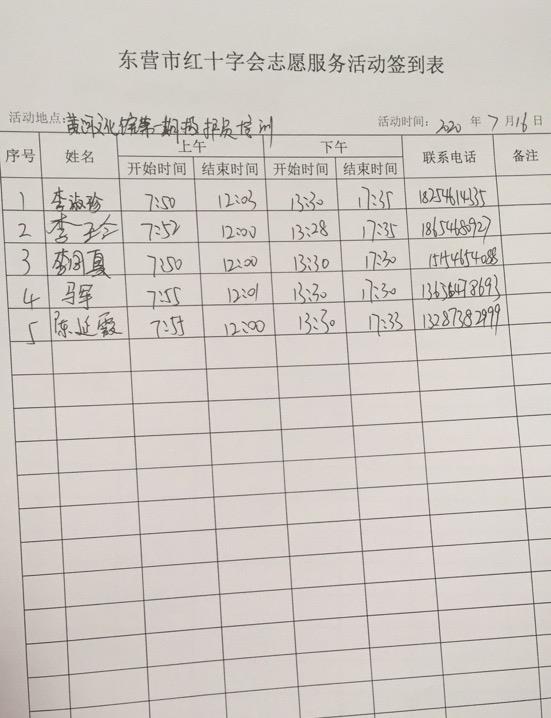 东营市红十字会志愿服务活动签到表
活动地点：黄河文化馆第一期救护员培训 活动时间：2020 年 7 月 16 日
序号 姓名 上午 下午 联系电话 备注
开始时间 结束时间 开始时间 结束时间
1 李淑珍 7:50 12:03 13:30 17:35 18254614335
2 李 7:52 12:00 13:28 17:35 18654680927
3 李 夏 7:50 12:00 13:30 17:30 15146154088
4 马军 7:55 12:01 13:30 17:30 13656478693
5 陈延霞 7:55 12:00 13:30 17:33 13287382999